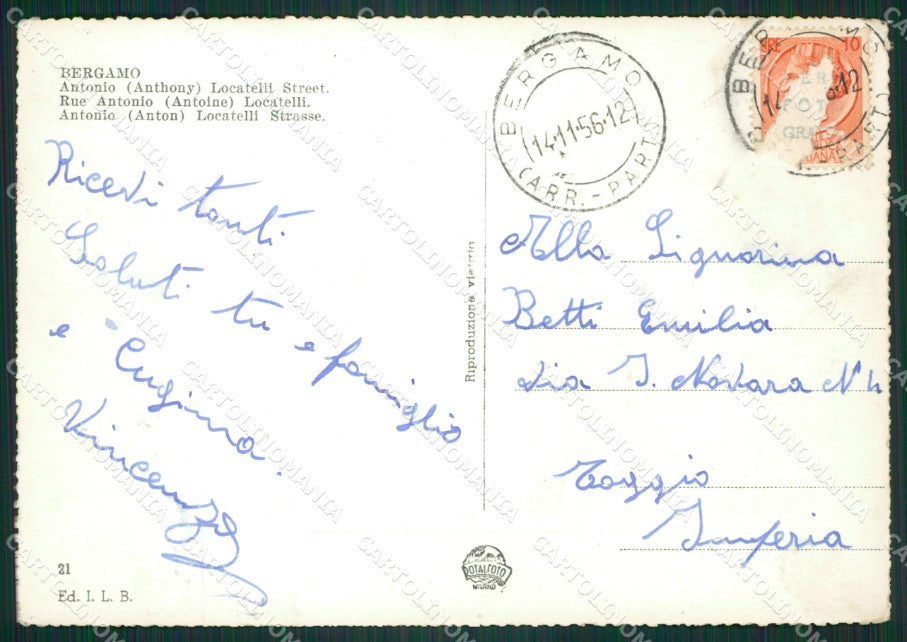 BERGAMO
Antonio (Anthony) Locatelli Street.
Rue Antonio (Antoine) Locatelli.
Antonio (Anton) Locatelli Strasse.
Ricevi tanti
Saluti tu e famiglia
e Cugina.
Vincenzo
21
Ed. I. L. B.
Riproduzione vietata
ROTALFOTO
MILANO
BERGAMO
14·11·56·12
(ARR.-PART.)
LIRE 10
Alla Signorina
Betti Emilia
Via S. Novara N 4
Taggia
Imperia
CARTOLINOMANIA